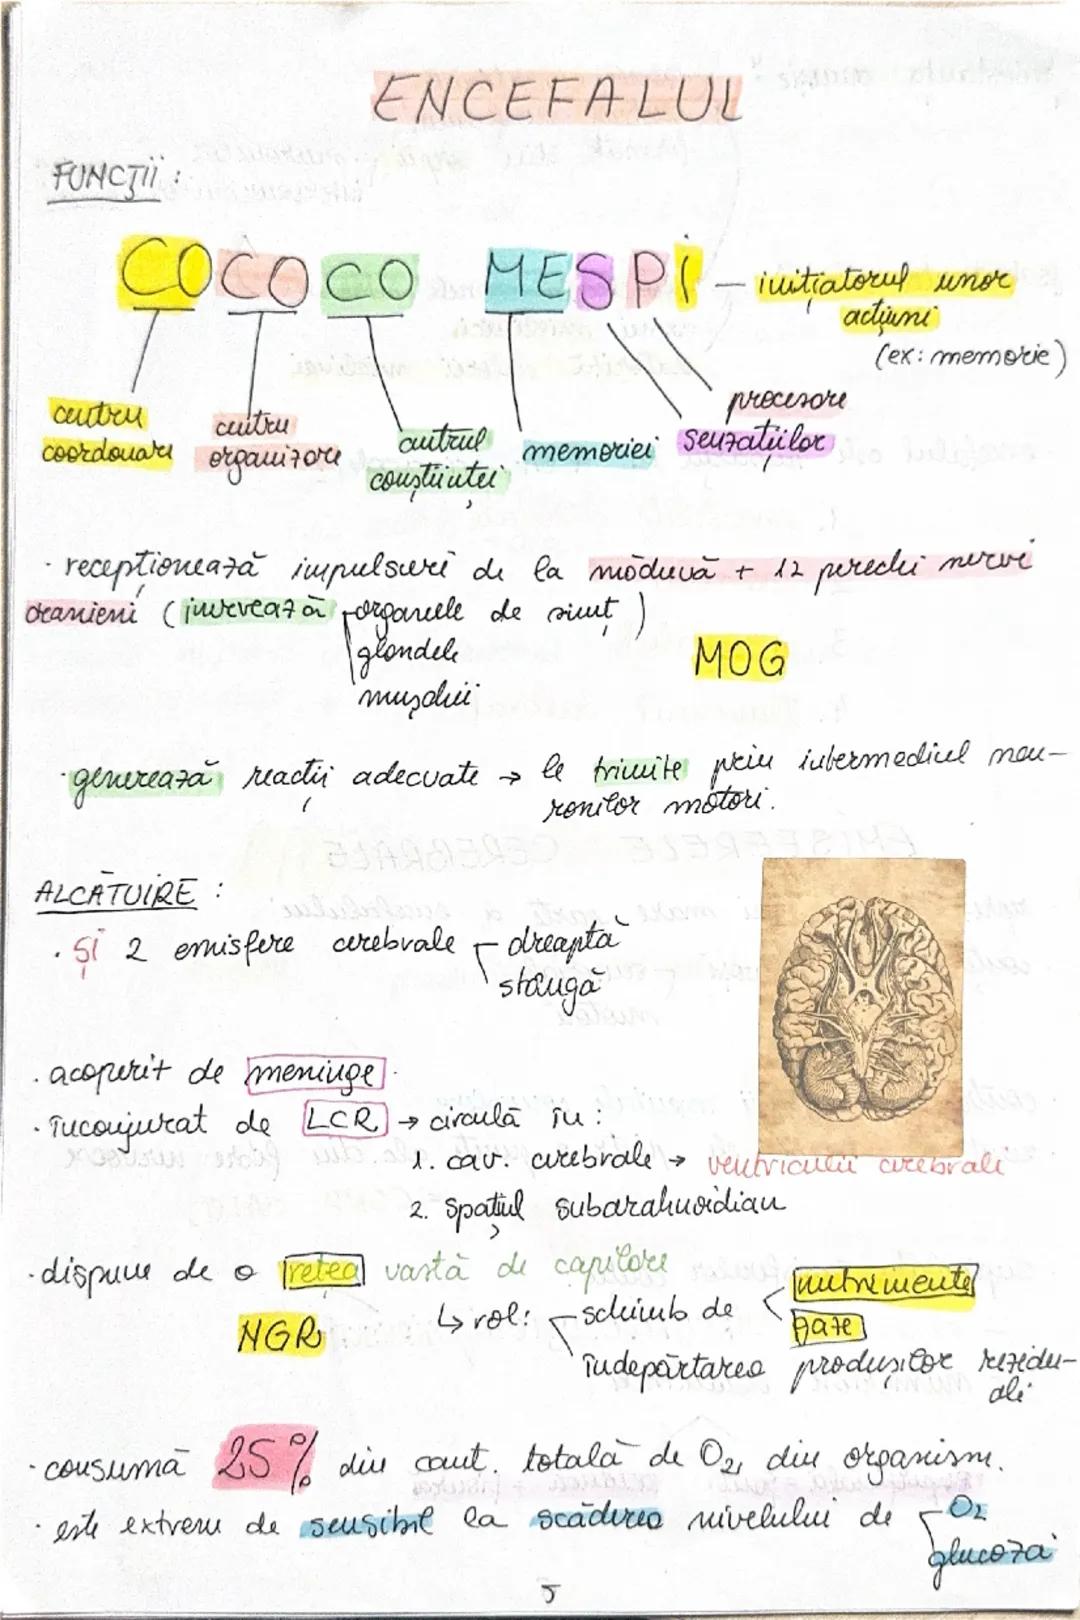 ENCEFALUL
FUNCȚII :
COCOCO MESPI — inițiatorul unor
acțiuni
(ex: memorie)
centru
coordonare
centru
organizare
centrul
conștiinței
memoriei
procesare
senzațiilor
· recepționează impulsuri de la măduvă + 12 perechi nervi
cranieni (inervează organele de simț)
glandele
mușchii
MOG
· generează reacții adecvate → le trimite prin intermediul neu-
ronilor motori.
ALCĂTUIRE :
· și 2 emisfere cerebrale dreaptă
stângă
· acoperit de meninge.
· înconjurat de LCR → circulă în :
1. cav. cerebrale → ventriculii cerebrali
2. spațiul subarahnoidian
· dispune de o rețea vastă de capilare
NGR
↳ rol: schimb de nutrimente
gaze
îndepărtarea produșilor rezidu-
ali
· consumă 25% din cant. totală de O2, din organism.
· este extrem de sensibil la scăderea nivelului de O2
glucoză
5